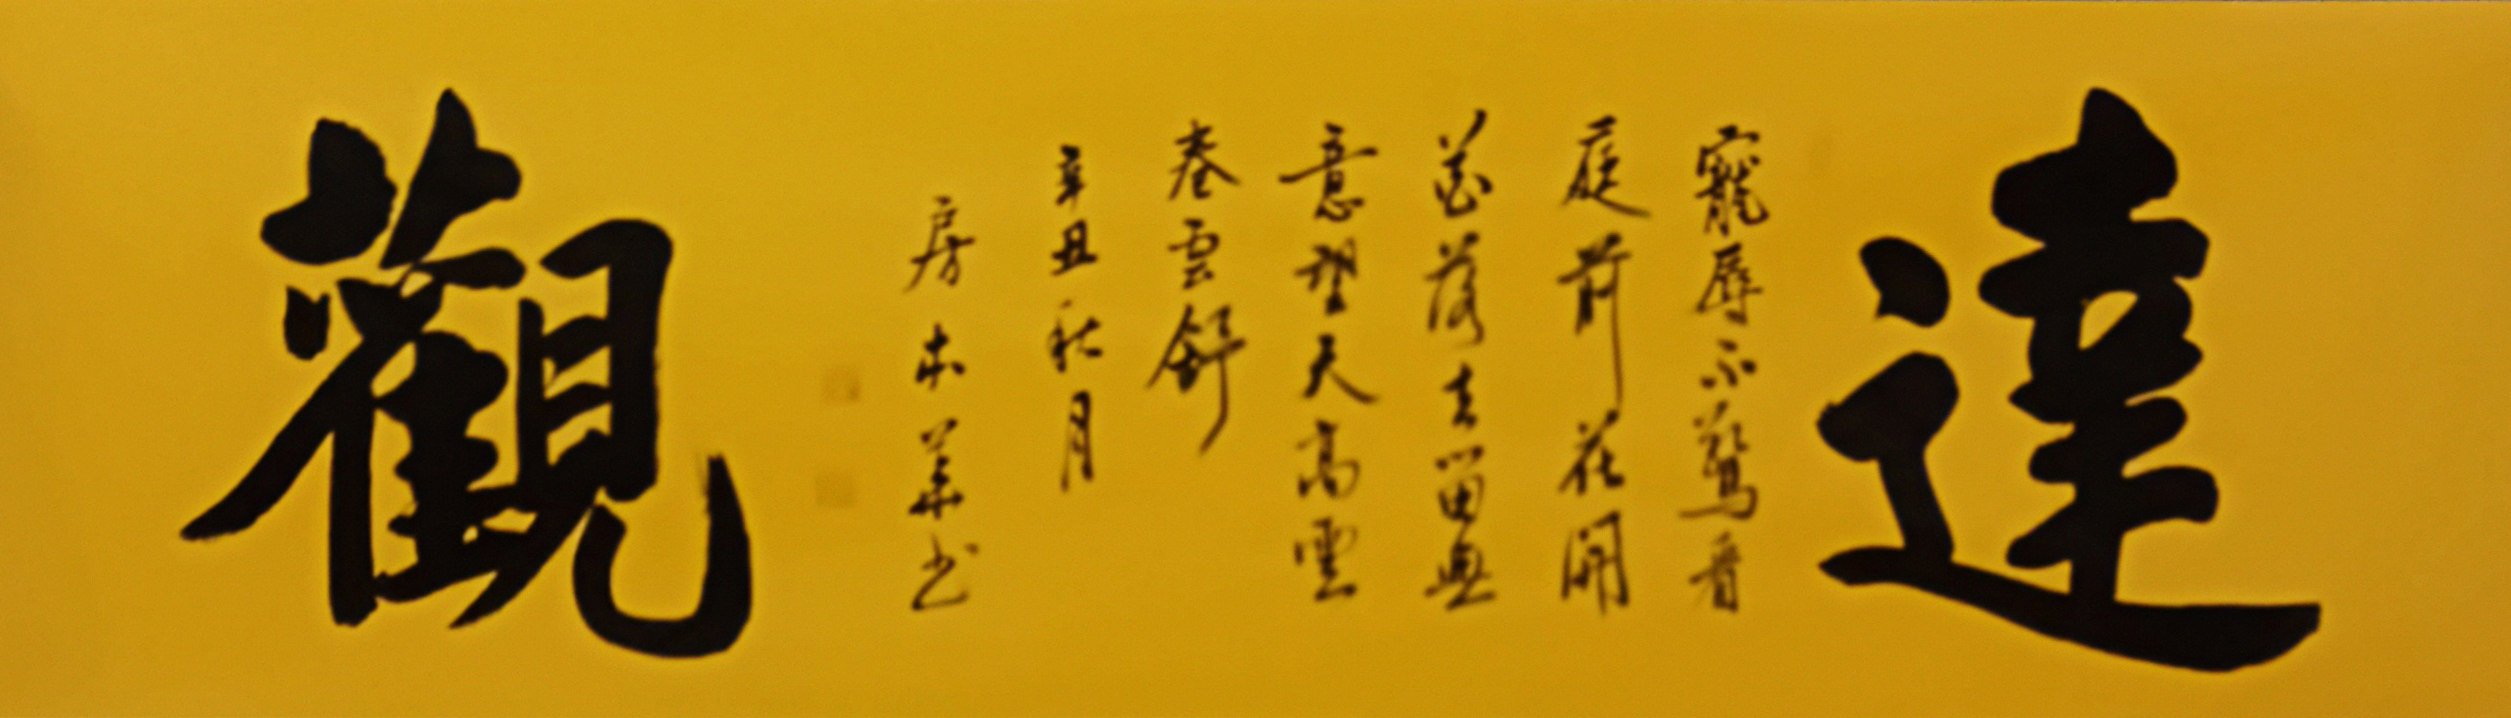 達
寵辱不驚看
庭前花開
花落去留無
意望天高雲
卷雲舒
辛丑秋月
房本華书
觀